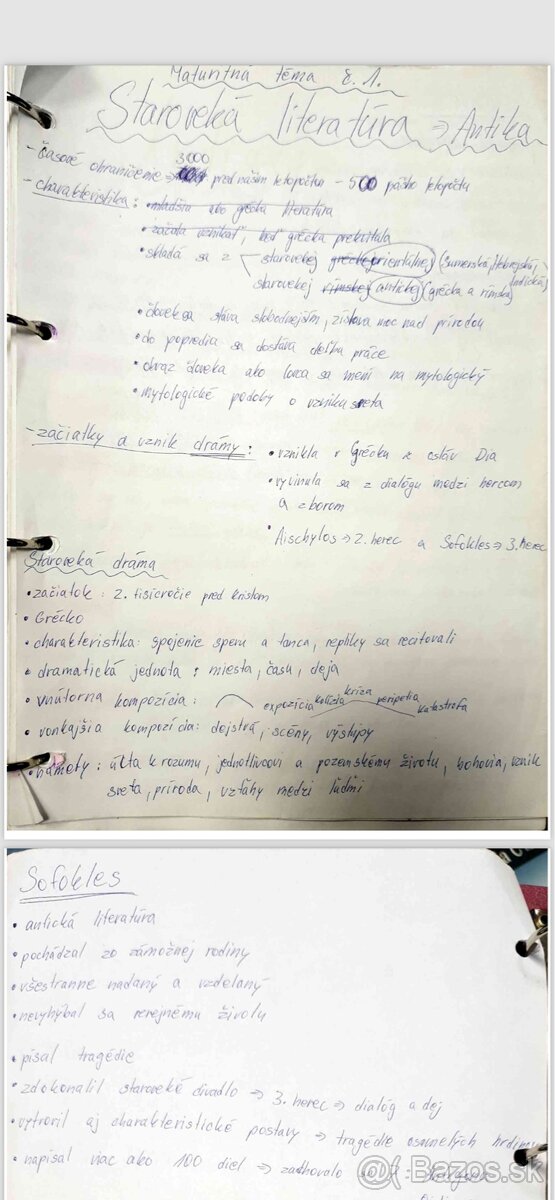 Maturitná téma č. 1.
Staroveká literatúra ⇒ Antika
- časové ohraničenie ⇒ 3000 pred naším letopočtom - 500 nášho letopočtu
- charakteristika: • mladšia ako grécka literatúra
• začala vznikať, keď grécka prekvitala
• skladá sa z starovekej grécke orientálnej (sumerská, hebrejská, indická)
starovekej rímskej antickej (grécka a rímska)
• človek sa stáva slobodnejším, získava moc nad prírodou
• do popredia sa dostáva deľba práce
• obraz človeka ako lovca sa mení na mytologický
• mytologické podoby o vzniku sveta
- začiatky a vznik drámy: • vznikla v Grécku z osláv Dia
• vyvinula sa z dialógu medzi hercom
a zborom
• Aischylos ⇒ 2. herec a Sofokles ⇒ 3. herec
Staroveká dráma
• začiatok: 2. tisícročie pred kristom
• Grécko
• charakteristika: spojenie spevu a tanca, repliky sa recitovali
• dramatická jednota: miesta, času, deja
• vnútorna kompozícia: expozícia kolízia kríza peripetia katastrofa
• vonkajšia kompozícia: dejstvá, scény, výstupy
• námety: úcta k rozumu, jednotlivcovi a pozemskému životu, bohovia, vznik
sveta, príroda, vzťahy medzi ľuďmi
Sofokles
• antická literatúra
• pochádzal zo zámožnej rodiny
• všestranne nadaný a vzdelaný
• nevyhýbal sa verejnému životu
• písal tragédie
• zdokonalil staroveké divadlo ⇒ 3. herec ⇒ dialóg a dej
• vytvoril aj charakteristické postavy ⇒ tragédie osamelých hrdinov
• napísal viac ako 100 diel ⇒ zachovalo sa 7:
Bazos.sk